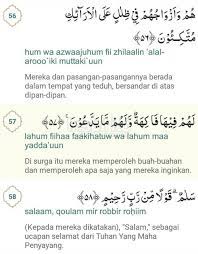 56
هُمْ وَأَزْوَاجُهُمْ فِي ظِلَالٍ عَلَى الْأَرَائِكِ
مُتَّكِئُونَ ﴿٥٦﴾
hum wa azwaajuhum fii zhilaalin 'alal-
arooo`iki muttaki`uun
Mereka dan pasangan-pasangannya berada
dalam tempat yang teduh, bersandar di atas
dipan-dipan.
57
لَهُمْ فِيهَا فَاكِهَةٌ وَلَهُمْ مَا يَدَّعُونَ ﴿٥٧﴾
lahum fiihaa faakihatuw wa lahum maa
yadda'uun
Di surga itu mereka memperoleh buah-buahan
dan memperoleh apa saja yang mereka inginkan.
58
سَلَامٌ قَوْلًا مِنْ رَبٍّ رَحِيمٍ ﴿٥٨﴾
salaam, qoulam mir robbir roḥiim
(Kepada mereka dikatakan), "Salam," sebagai
ucapan selamat dari Tuhan Yang Maha
Penyayang.